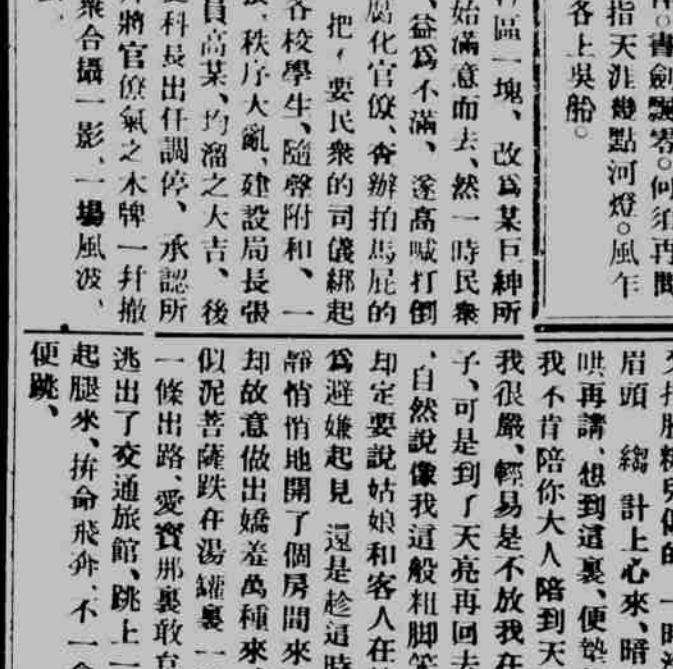 書劍飄零。何須再問
指天涯幾點河燈。風乍
各上吳船。
區一塊、改爲某巨紳所
始滿意而去、然一時民衆
、益爲不滿、遂高喊打倒
腐化官僚、查辦拍馬屁的
把，要民衆的司儀綁起
各校學生、隨聲附和、一
、秩序大亂、建設局長張
員高某、均溜之大吉、後
科長出任調停、承認所
將官僚氣之木牌一幷撤
衆合攝一影、一場風波、
一時
眉頭 縐 計上心來、暗
哄再講、想到這裏、便墊
我不肯陪你大人陪到天
我很嚴、輕易是不放我在
子、可是到了天亮再回去
、自然說像我這般粗脚笨
却定要說姑娘和客人在
爲避嫌起見 還是趁這時
靜悄悄地開了個房間來
却故意做出嬌羞萬種來
似泥菩薩跌在湯罐裏一
一條出路、愛寶那裏敢怠
逃出了交通旅館、跳上一
起腿來、拚命飛奔、不一會
便跳、